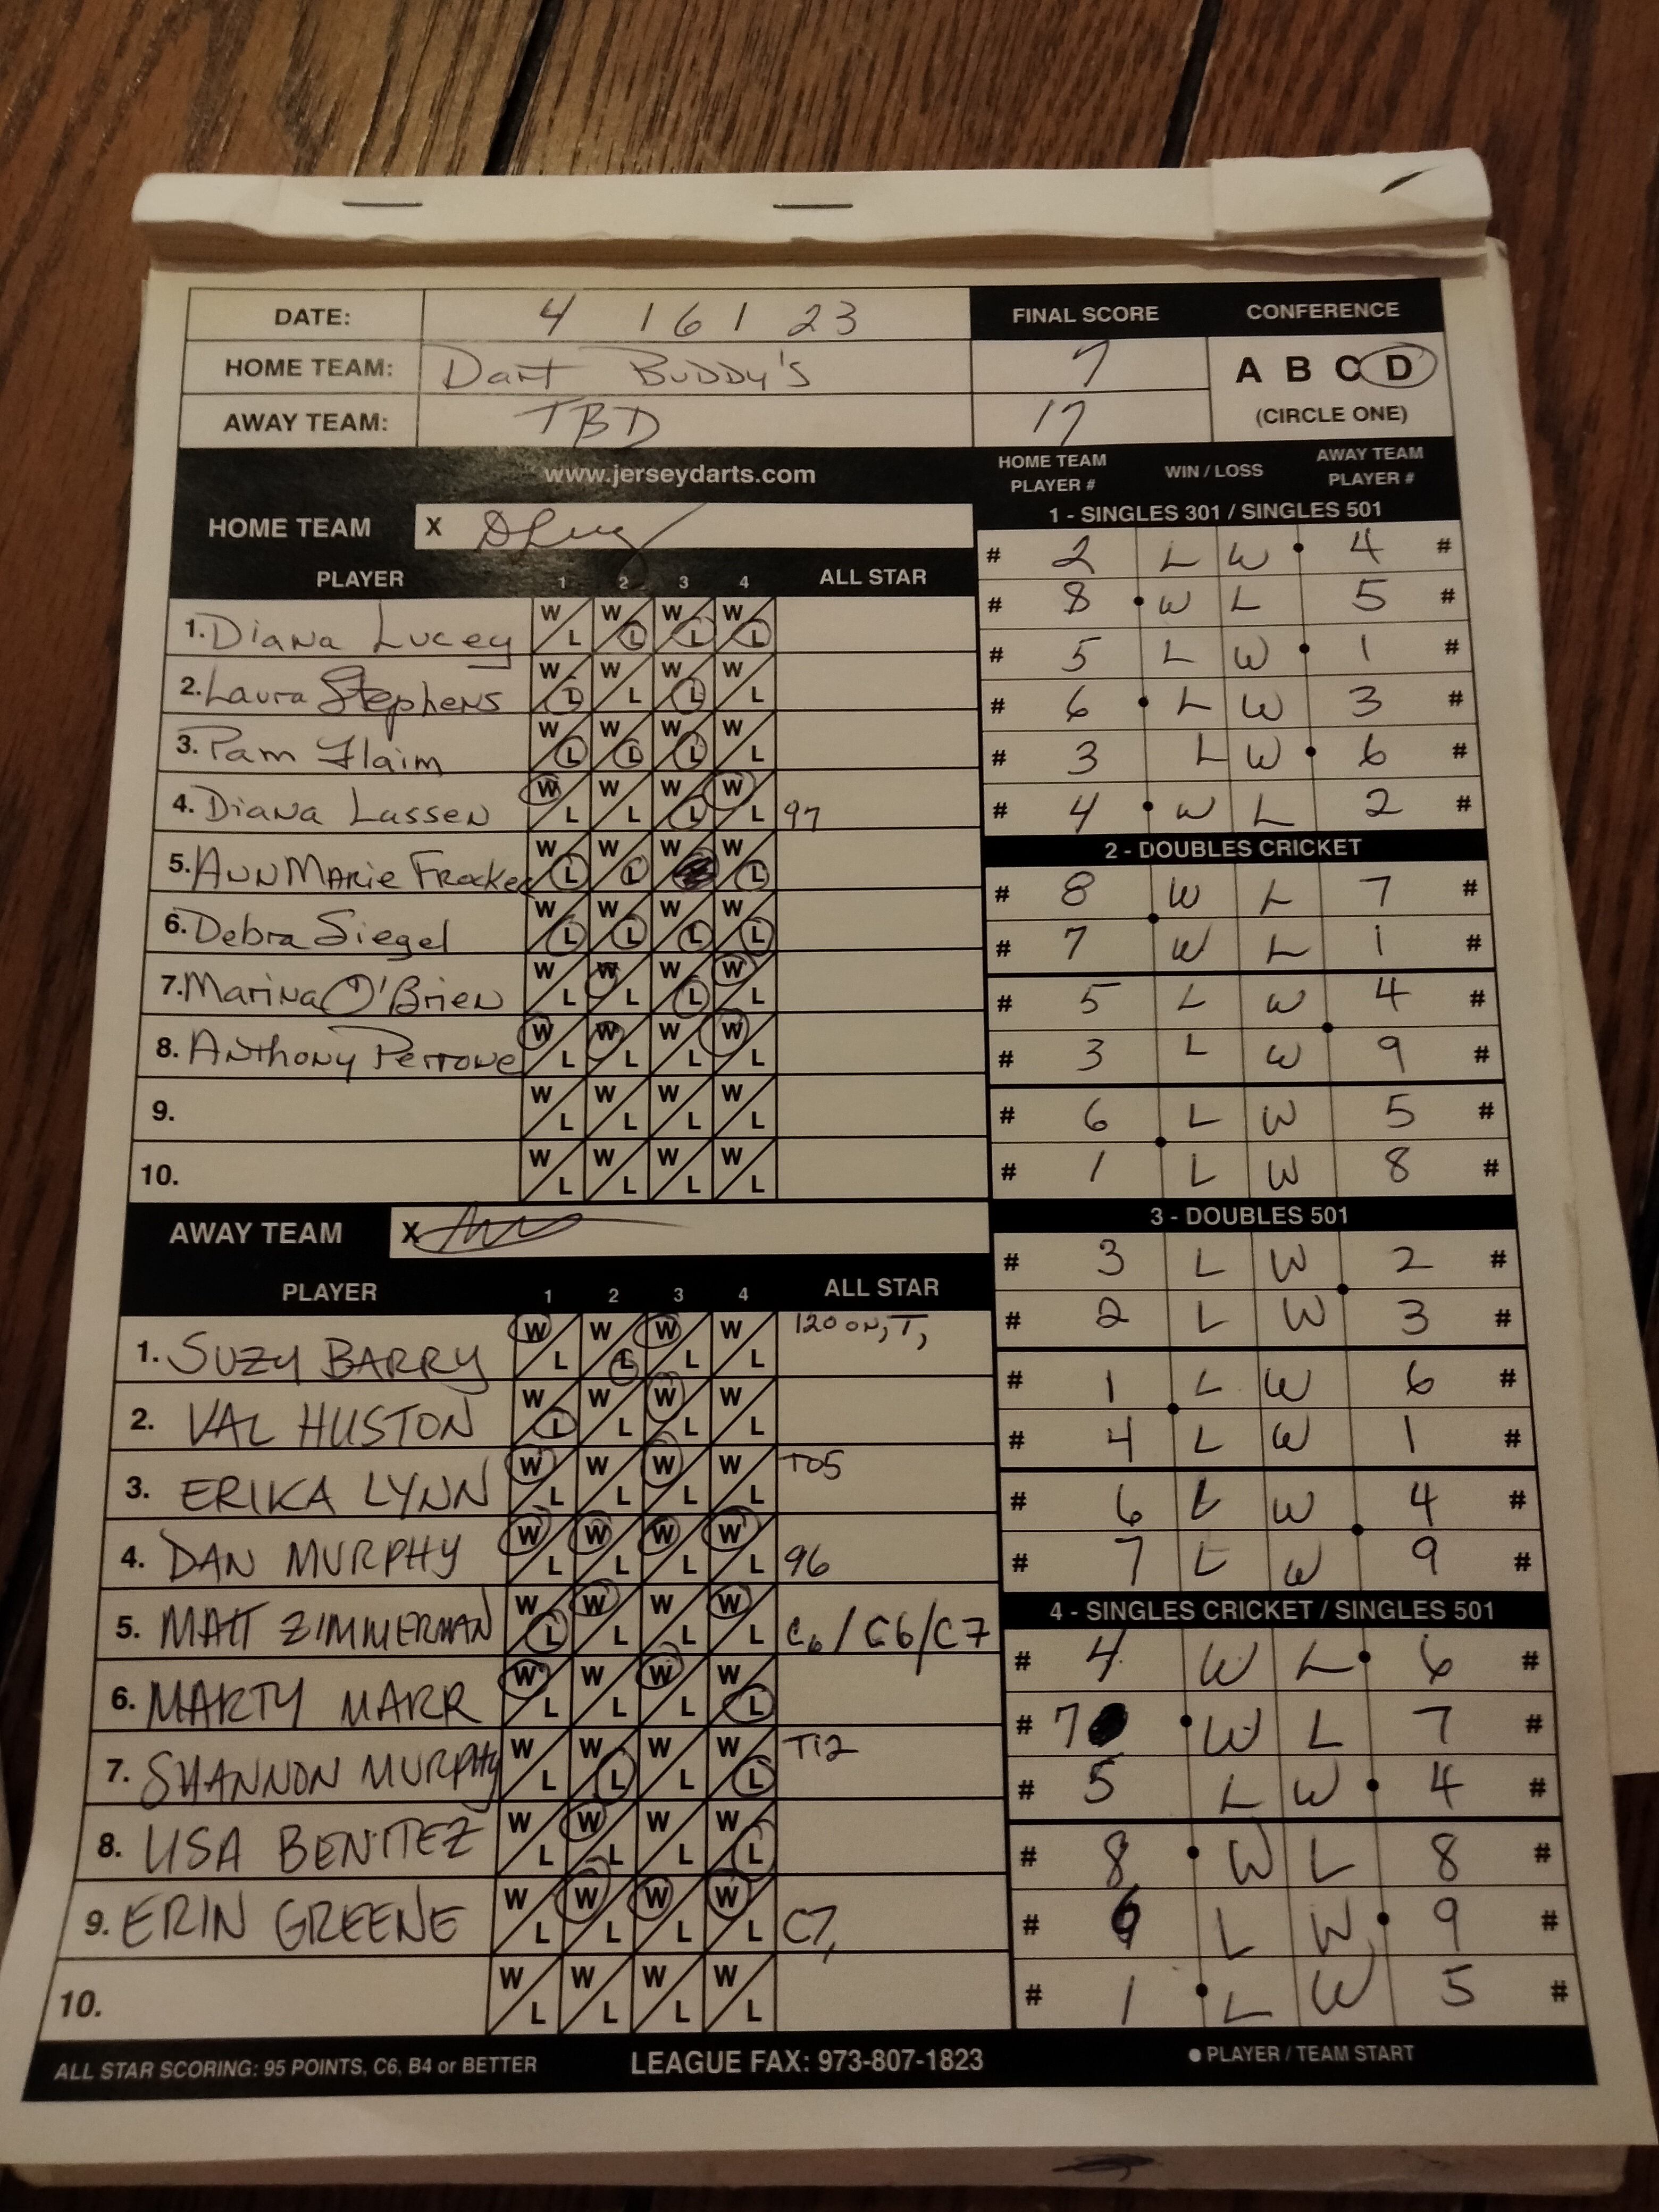 DATE: 4 16 1 23 FINAL SCORE CONFERENCE
HOME TEAM: Dart BuDDy's 7 A B C D
AWAY TEAM: TBD 17 (CIRCLE ONE)
www.jerseydarts.com HOME TEAM PLAYER # WIN / LOSS AWAY TEAM PLAYER #
HOME TEAM X
PLAYER 1 2 3 4 ALL STAR
1. Diana Lucey W L W L W L W L
2. Laura Stephens W L W L W L W L
3. Pam Flaim W L W L W L W L
4. Diana Lassen W L W L W L W L 97
5. AnnMarie W L W L W W L
6. Debra Siegel W L W L W L W L
7. Marina O'Brien W L W L W L W L
8. Anthony Perrone W L W L W L W L
9. W L W L W L W L
10. W L W L W L W L
AWAY TEAM X
PLAYER 1 2 3 4 ALL STAR
1. SUZY BARRY W L W L W L W L 120 ON, T,
2. VAL HUSTON W L W L W L W L
3. ERIKA LYNN W L W L W L W L T05
4. DAN MURPHY W L W L W L W L 96
5. MATT ZIMMERMAN W L W L W L W L C6 / C6 / C7
6. MARTY MARR W L W L W L W L
7. SHANNON MURPHY W L W L W L W L T12
8. LISA BENITEZ W L W L W L W L
9. ERIN GREENE W L W L W L W L C7,
10. W L W L W L W L
1 - SINGLES 301 / SINGLES 501
# 2 L W 4 #
# 8 W L 5 #
# 5 L W 1 #
# 6 L W 3 #
# 3 L W 6 #
# 4 W L 2 #
2 - DOUBLES CRICKET
# 8 W L 7 #
# 7 W L 1 #
# 5 L W 4 #
# 3 L W 9 #
# 6 L W 5 #
# 1 L W 8 #
3 - DOUBLES 501
# 3 L W 2 #
# 2 L W 3 #
# 1 L W 6 #
# 4 L W 1 #
# 6 L W 4 #
# 7 L W 9 #
4 - SINGLES CRICKET / SINGLES 501
# 4 W L 6 #
# 7 W L 7 #
# 5 L W 4 #
# 8 W L 8 #
# 6 L W 9 #
# 1 L W 5 #
ALL STAR SCORING: 95 POINTS, C6, B4 or BETTER LEAGUE FAX: 973-807-1823 ● PLAYER / TEAM START